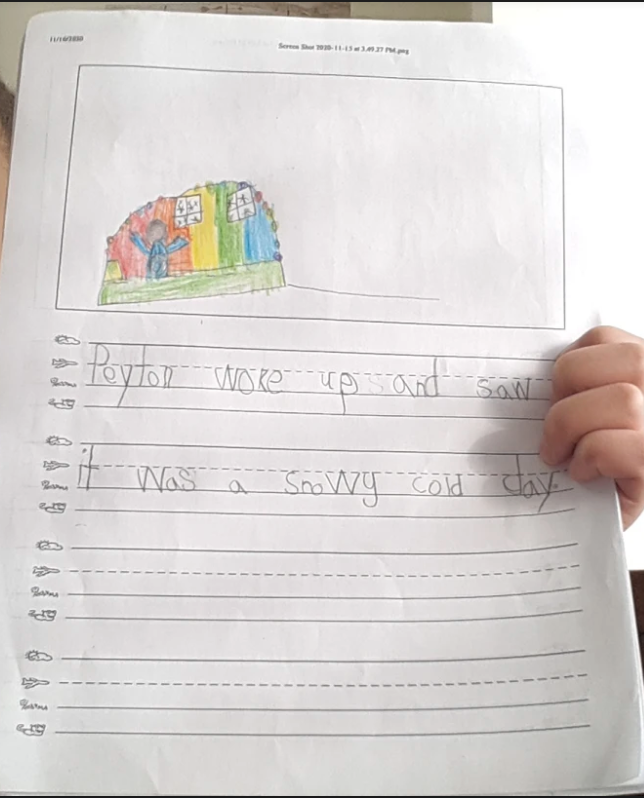 11/16/2020
Screen Shot 2020-11-15 at 3.49.27 PM.png
Peyton woke up and saw
it was a snowy cold day.